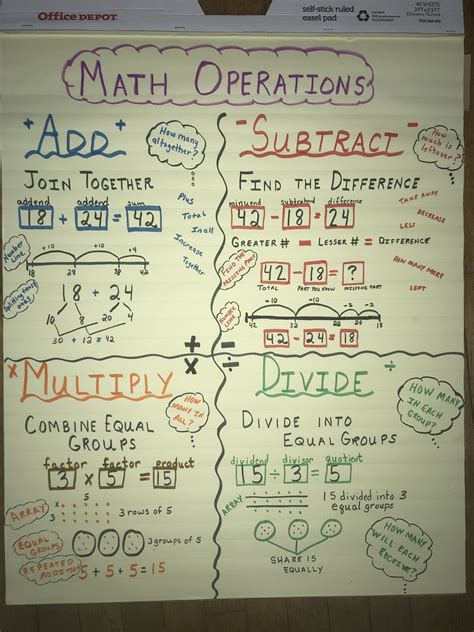 Office DEPOT
self-stick ruled
easel pad
40 SHEETS
MATH OPERATIONS
+ ADD +
How many altogether?
JOIN TOGETHER
addend addend sum
18 + 24 = 42
Plus
Total
In all
Increase
Together
Number Line
+10 +10 +4
18 28 38 42
Splitting tens & ones
18 + 24
10 8 20 4
30 + 12 = 42
- SUBTRACT -
How much is leftover?
FIND THE DIFFERENCE
minuend subtrahend difference
42 - 18 = 24
TAKE AWAY
DECREASE
LESS
GREATER # - LESSER # = DIFFERENCE
FIND THE MISSING PART
42 - 18 = ?
TOTAL PART YOU KNOW MISSING PART
HOW MANY MORE
LEFT
NUMBER LINE
-10 -10 -2 -2
42 32 22 20 18
42 - 24 = 18
+ -
× ÷
× MULTIPLY
HOW MANY IN ALL?
COMBINE EQUAL
GROUPS
factor factor product
3 × 5 = 15
ARRAY
× 5
3
3 rows of 5
EQUAL GROUPS
3 groups of 5
REPEATED ADDITION
5 + 5 + 5 = 15
DIVIDE ÷
HOW MANY IN EACH GROUP?
DIVIDE INTO
EQUAL GROUPS
dividend divisor quotient
15 ÷ 3 = 5
ARRAY
15 divided into 3
equal groups
SHARE IS
EQUALLY
HOW MANY WILL EACH RECEIVE?